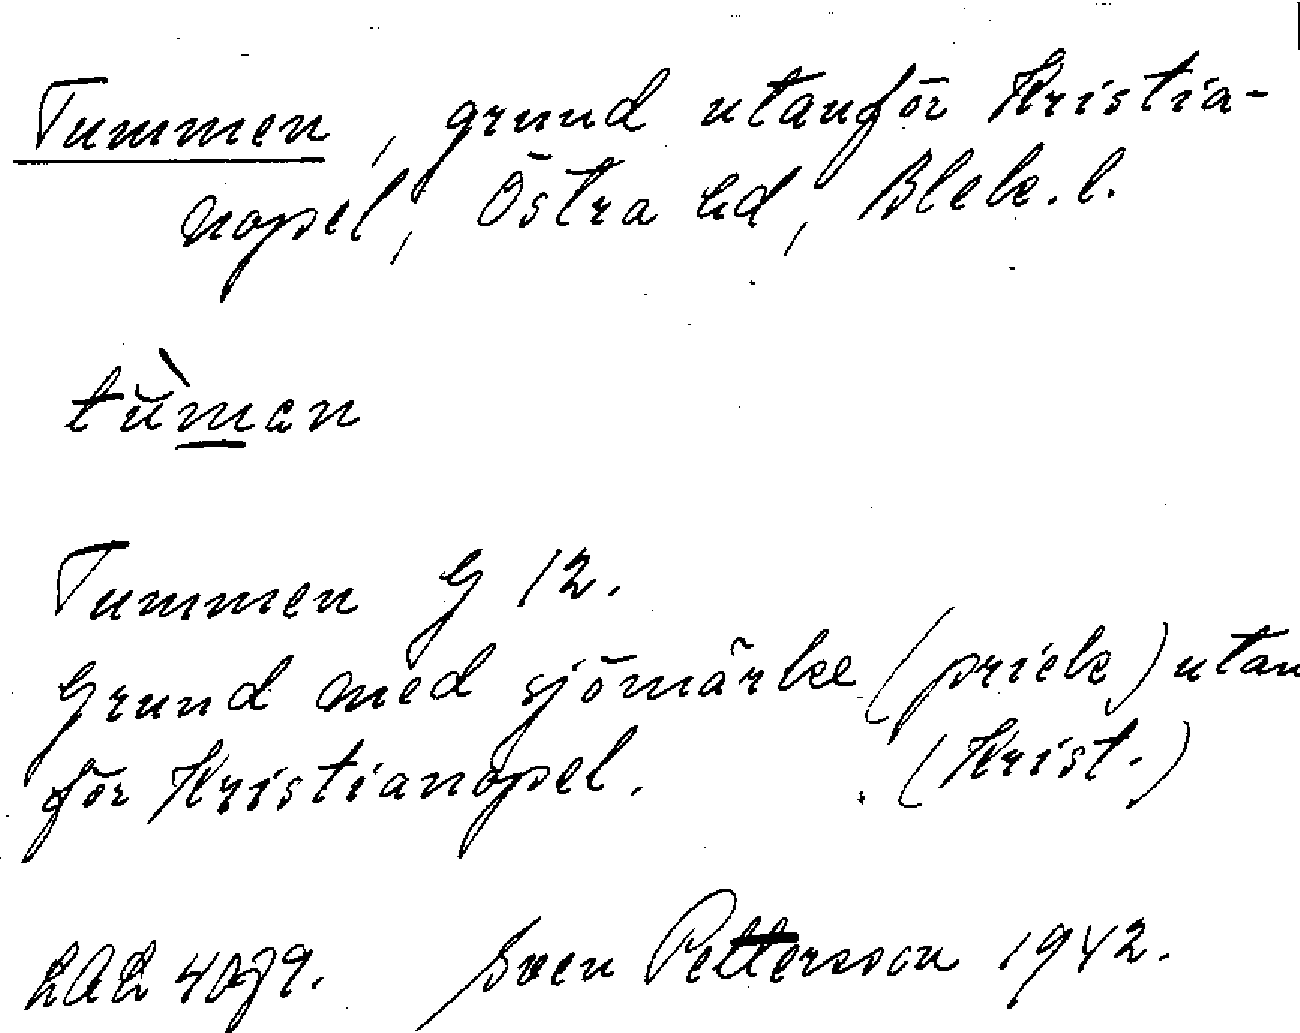 Tummen, grund utanför Kristia-
nopel, Östra hd, Blek. l.
tùman
Tummen G 12.
Grund med sjömärke (prick) utan
för Kristianopel. (Krist.)
LAL Sven Pettersson 1942.